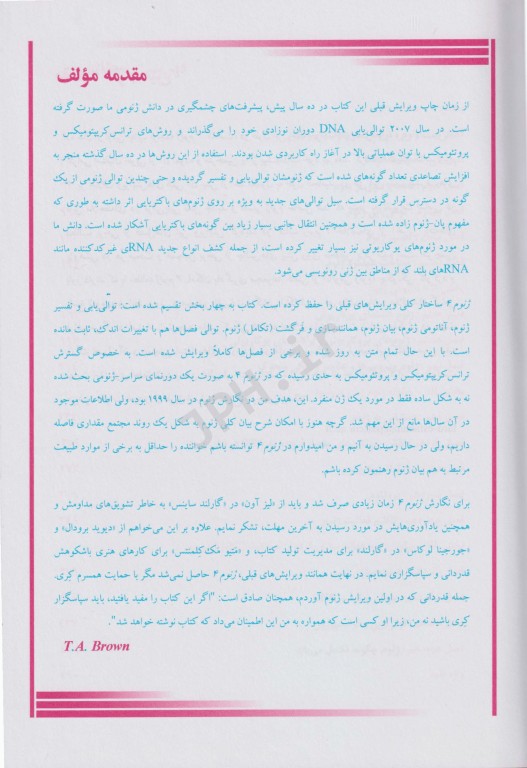 مقدمه مؤلف
از زمان چاپ ویرایش قبلی این کتاب در ده سال پیش، پیشرفت‌های چشمگیری در دانش ژنومی ما صورت گرفته
است. در سال ۲۰۰۷ توالی‌یابی DNA دوران نوزادی خود را می‌گذراند و روش‌های ترانس‌کریپتومیکس و
پروتئومیکس با توان عملیاتی بالا در آغاز راه کاربردی شدن بودند. استفاده از این روش‌ها در ده سال گذشته منجر به
افزایش تصاعدی تعداد گونه‌های شده است که ژنومشان توالی‌یابی و تفسیر گردیده و حتی چندین توالی ژنومی از یک
گونه در دسترس قرار گرفته است. سیل توالی‌های جدید به ویژه بر روی ژنوم‌های باکتریایی اثر داشته به طوری که
مفهوم پان-ژنوم زاده شده است و همچنین انتقال جانبی بسیار زیاد بین گونه‌های باکتریایی آشکار شده است. دانش ما
در مورد ژنوم‌های یوکاریوتی نیز بسیار تغییر کرده است، از جمله کشف انواع جدید RNAی غیرکدکننده مانند
RNAهای بلند که از مناطق بین ژنی رونویسی می‌شود.
ژنوم ۴ ساختار کلی ویرایش‌های قبلی را حفظ کرده است. کتاب به چهار بخش تقسیم شده است: توالی‌یابی و تفسیر
ژنوم، آناتومی ژنوم، بیان ژنوم، همانندسازی و فرگشت (تکامل) ژنوم. توالی فصل‌ها هم با تغییرات اندک، ثابت مانده
است. با این حال تمام متن به روز شده و برخی از فصل‌ها کاملاً ویرایش شده است. به خصوص گسترش
ترانس‌کریپتومیکس و پروتئومیکس به حدی رسیده که در ژنوم ۴ به صورت یک دورنمای سراسر-ژنومی بحث شده
نه به شکل ساده فقط در مورد یک ژن منفرد. این، هدف من در نگارش ژنوم در سال ۱۹۹۹ بود، ولی اطلاعات موجود
در آن سال‌ها مانع از این مهم شد. گرچه هنوز با امکان شرح بیان کلی ژنوم به شکل یک روند مجتمع مقداری فاصله
داریم، ولی در حال رسیدن به آنیم و من امیدوارم در ژنوم ۴ توانسته باشم خواننده را حداقل به برخی از موارد طبیعت
مرتبط به هم بیان ژنوم رهنمون کرده باشم.
برای نگارش ژنوم ۴ زمان زیادی صرف شد و باید از «لیز آون» در «گارلند ساینس» به خاطر تشویق‌های مداومش و
همچنین یادآوری‌هایش در مورد رسیدن به آخرین مهلت، تشکر نمایم. علاوه بر این می‌خواهم از «دیوید برودال» و
«جورجینا لوکاس» در «گارلند» برای مدیریت تولید کتاب، و «متیو مک‌کلمنتس» برای کارهای هنری باشکوهش
قدردانی و سپاسگزاری نمایم. در نهایت همانند ویرایش‌های قبلی، ژنوم ۴ حاصل نمی‌شد مگر با حمایت همسرم کِری.
جمله قدردانی که در اولین ویرایش ژنوم آوردم، همچنان صادق است: "اگر این کتاب را مفید یافتید، باید سپاسگزار
کِری باشید نه من، زیرا او کسی است که همواره به من این اطمینان می‌داد که کتاب نوشته خواهد شد".
T.A. Brown
JPH.ir